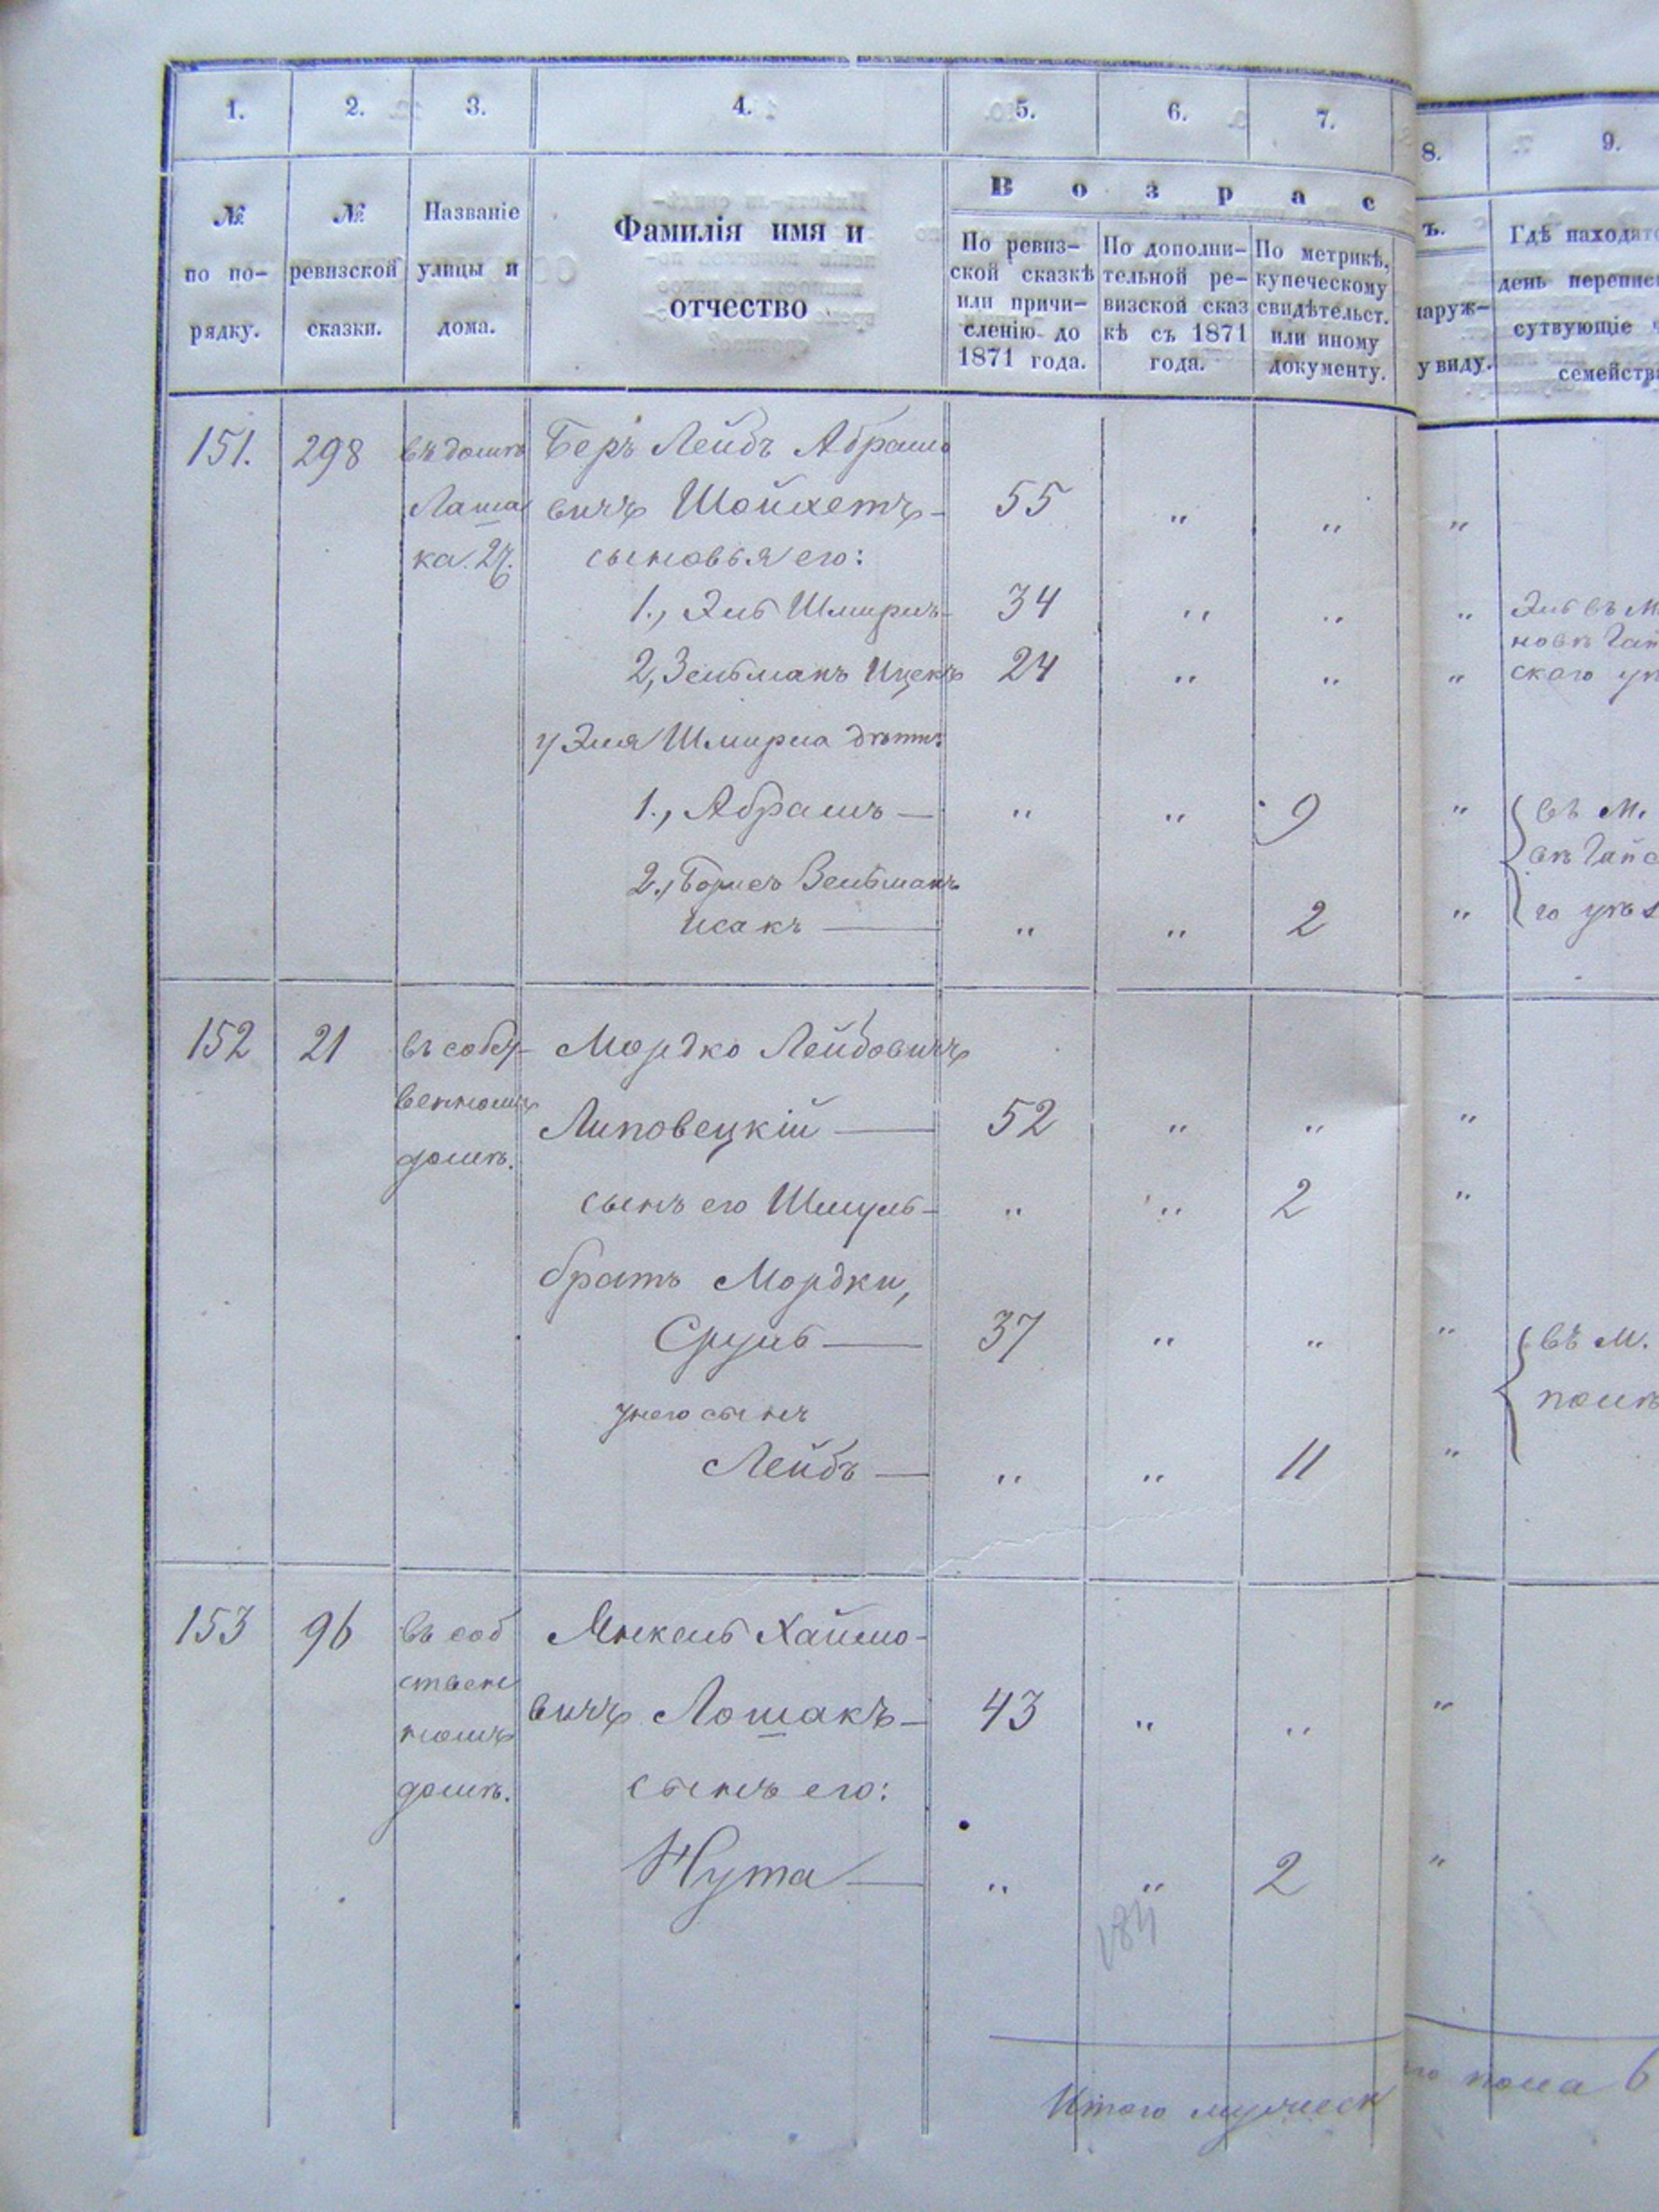 1. 2. 3. 4. 5. 6. 7. 8. 9.
№ по порядку.
№ ревизской сказки.
Названіе улицы и дома.
Фамилія имя и отчество
В о з р а с
ъ.
По ревиз-
ской сказкѣ
или причи-
сленію до
1871 года.
По дополни-
тельной ре-
визской сказ
кѣ съ 1871
года.
По метрикѣ,
купеческому
свидѣтельст.
или иному
документу.
наруж-
у виду.
Гдѣ находитс
день перепис
сутвующіе ч
семейств
151. 298 въ домѣ Беръ Лейбъ Абрамо
Лоша вичъ Шойхетъ- 55 " " "
ка. 27. сыновья его:
1., Эль Шмирль- 34 " " " Эль въ м
новкѣ Гай
2, Зельманъ Ицекъ 24 " " " скаго уѣ
у Эля Шмирла дѣти:
1., Абрамъ — " " 9 " въ м.
вкѣ Гайс
2., Борисъ Зельманъ
Исакъ — " " 2 " го уѣз
152 21 въ собст- Мордко Лейбовичъ
венномъ Липовецкій — 52 " " "
домѣ.
сынъ его Шмуль- " " 2 "
братъ Мордки,
Сруль — 37 " " " въ м.
у него сынъ
Лейбъ — " " 11 "
153 96 въ соб Янкель Хаимо-
ствен
номъ вичъ Лошакъ- 43 " " "
домѣ. сынъ его:
Нута — " " 2 "
184
Итого мужеск го пола 6